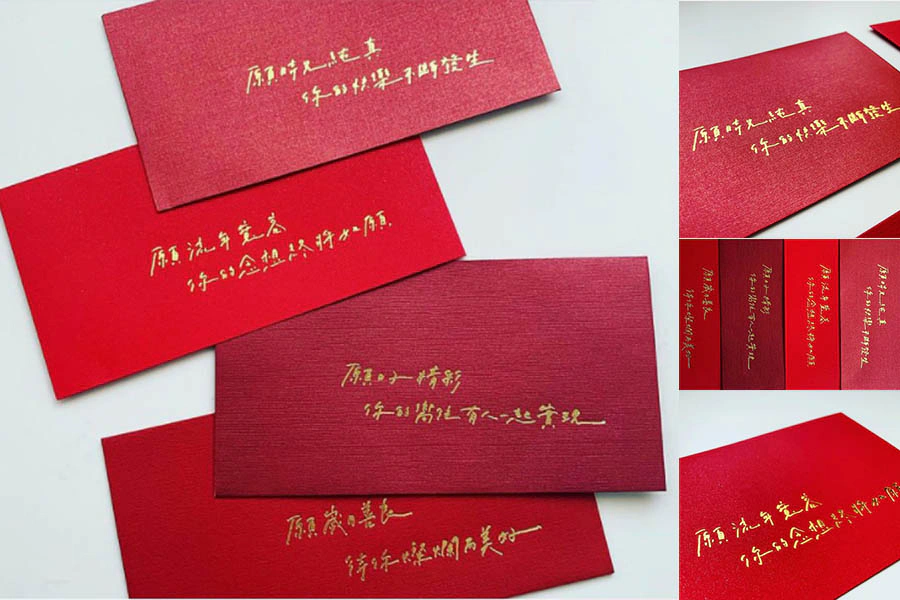 願時光純真
你的快樂不斷發生
願流年
你的念想終將如願
願日子精彩
你的嚮往有人一起實現
願歲月善良
待你燦爛而美好
願時光純真
你的快樂不斷發生
願歲月善良
待你燦爛而美好
願日子精彩
你的嚮往有人一起實現
願流年
你的念想終將如願
願時光純真
你的快樂不斷發生
願流年
你的念想終將如願